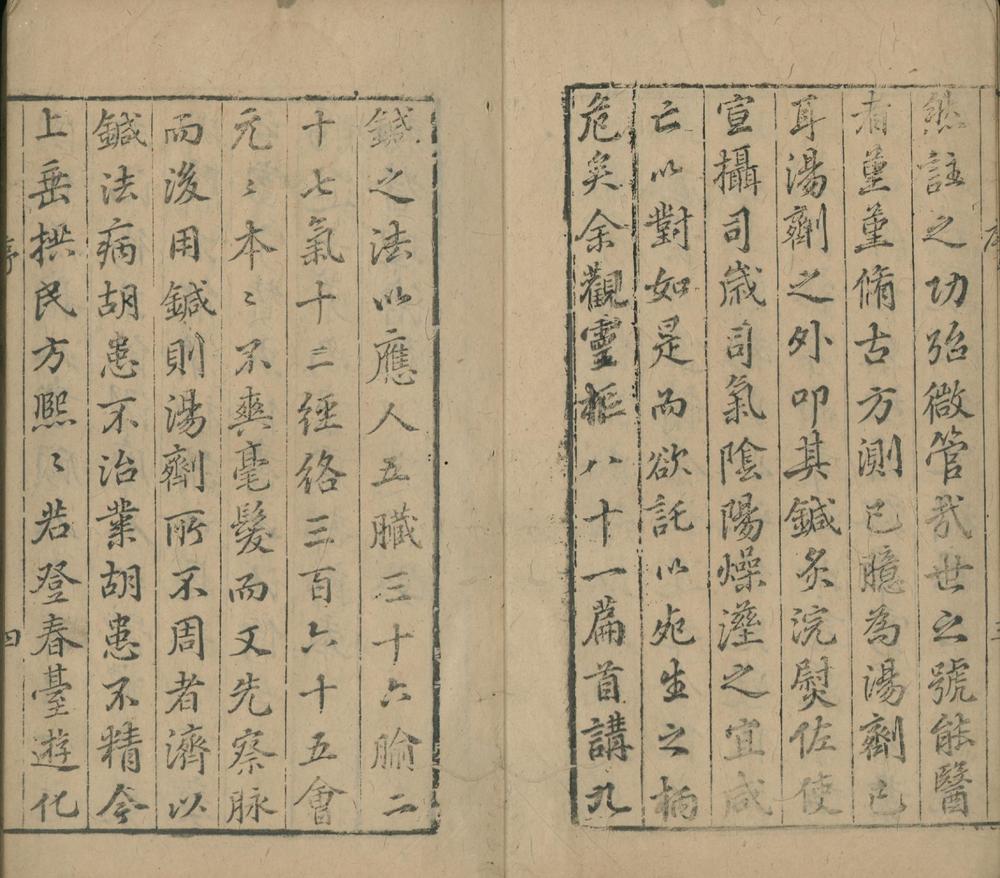 然註之功殆微管哉世之號能醫
者堇堇脩古方測己臆為湯劑已
耳湯劑之外叩其鍼灸浣熨佐使
宣攝司歲司氣陰陽燥溼之宜咸
亡以對如是而欲託以死生之柄
危矣余觀靈樞八十一扁首講九
鍼之法以應人五臟三十六腧二
十七氣十二經絡三百六十五會
元〻本〻不爽毫髮而又先察脉
而後用鍼則湯劑所不周者濟以
鍼法病胡患不治業胡患不精今
上垂拱民方熙〻若登春臺遊化
序
四